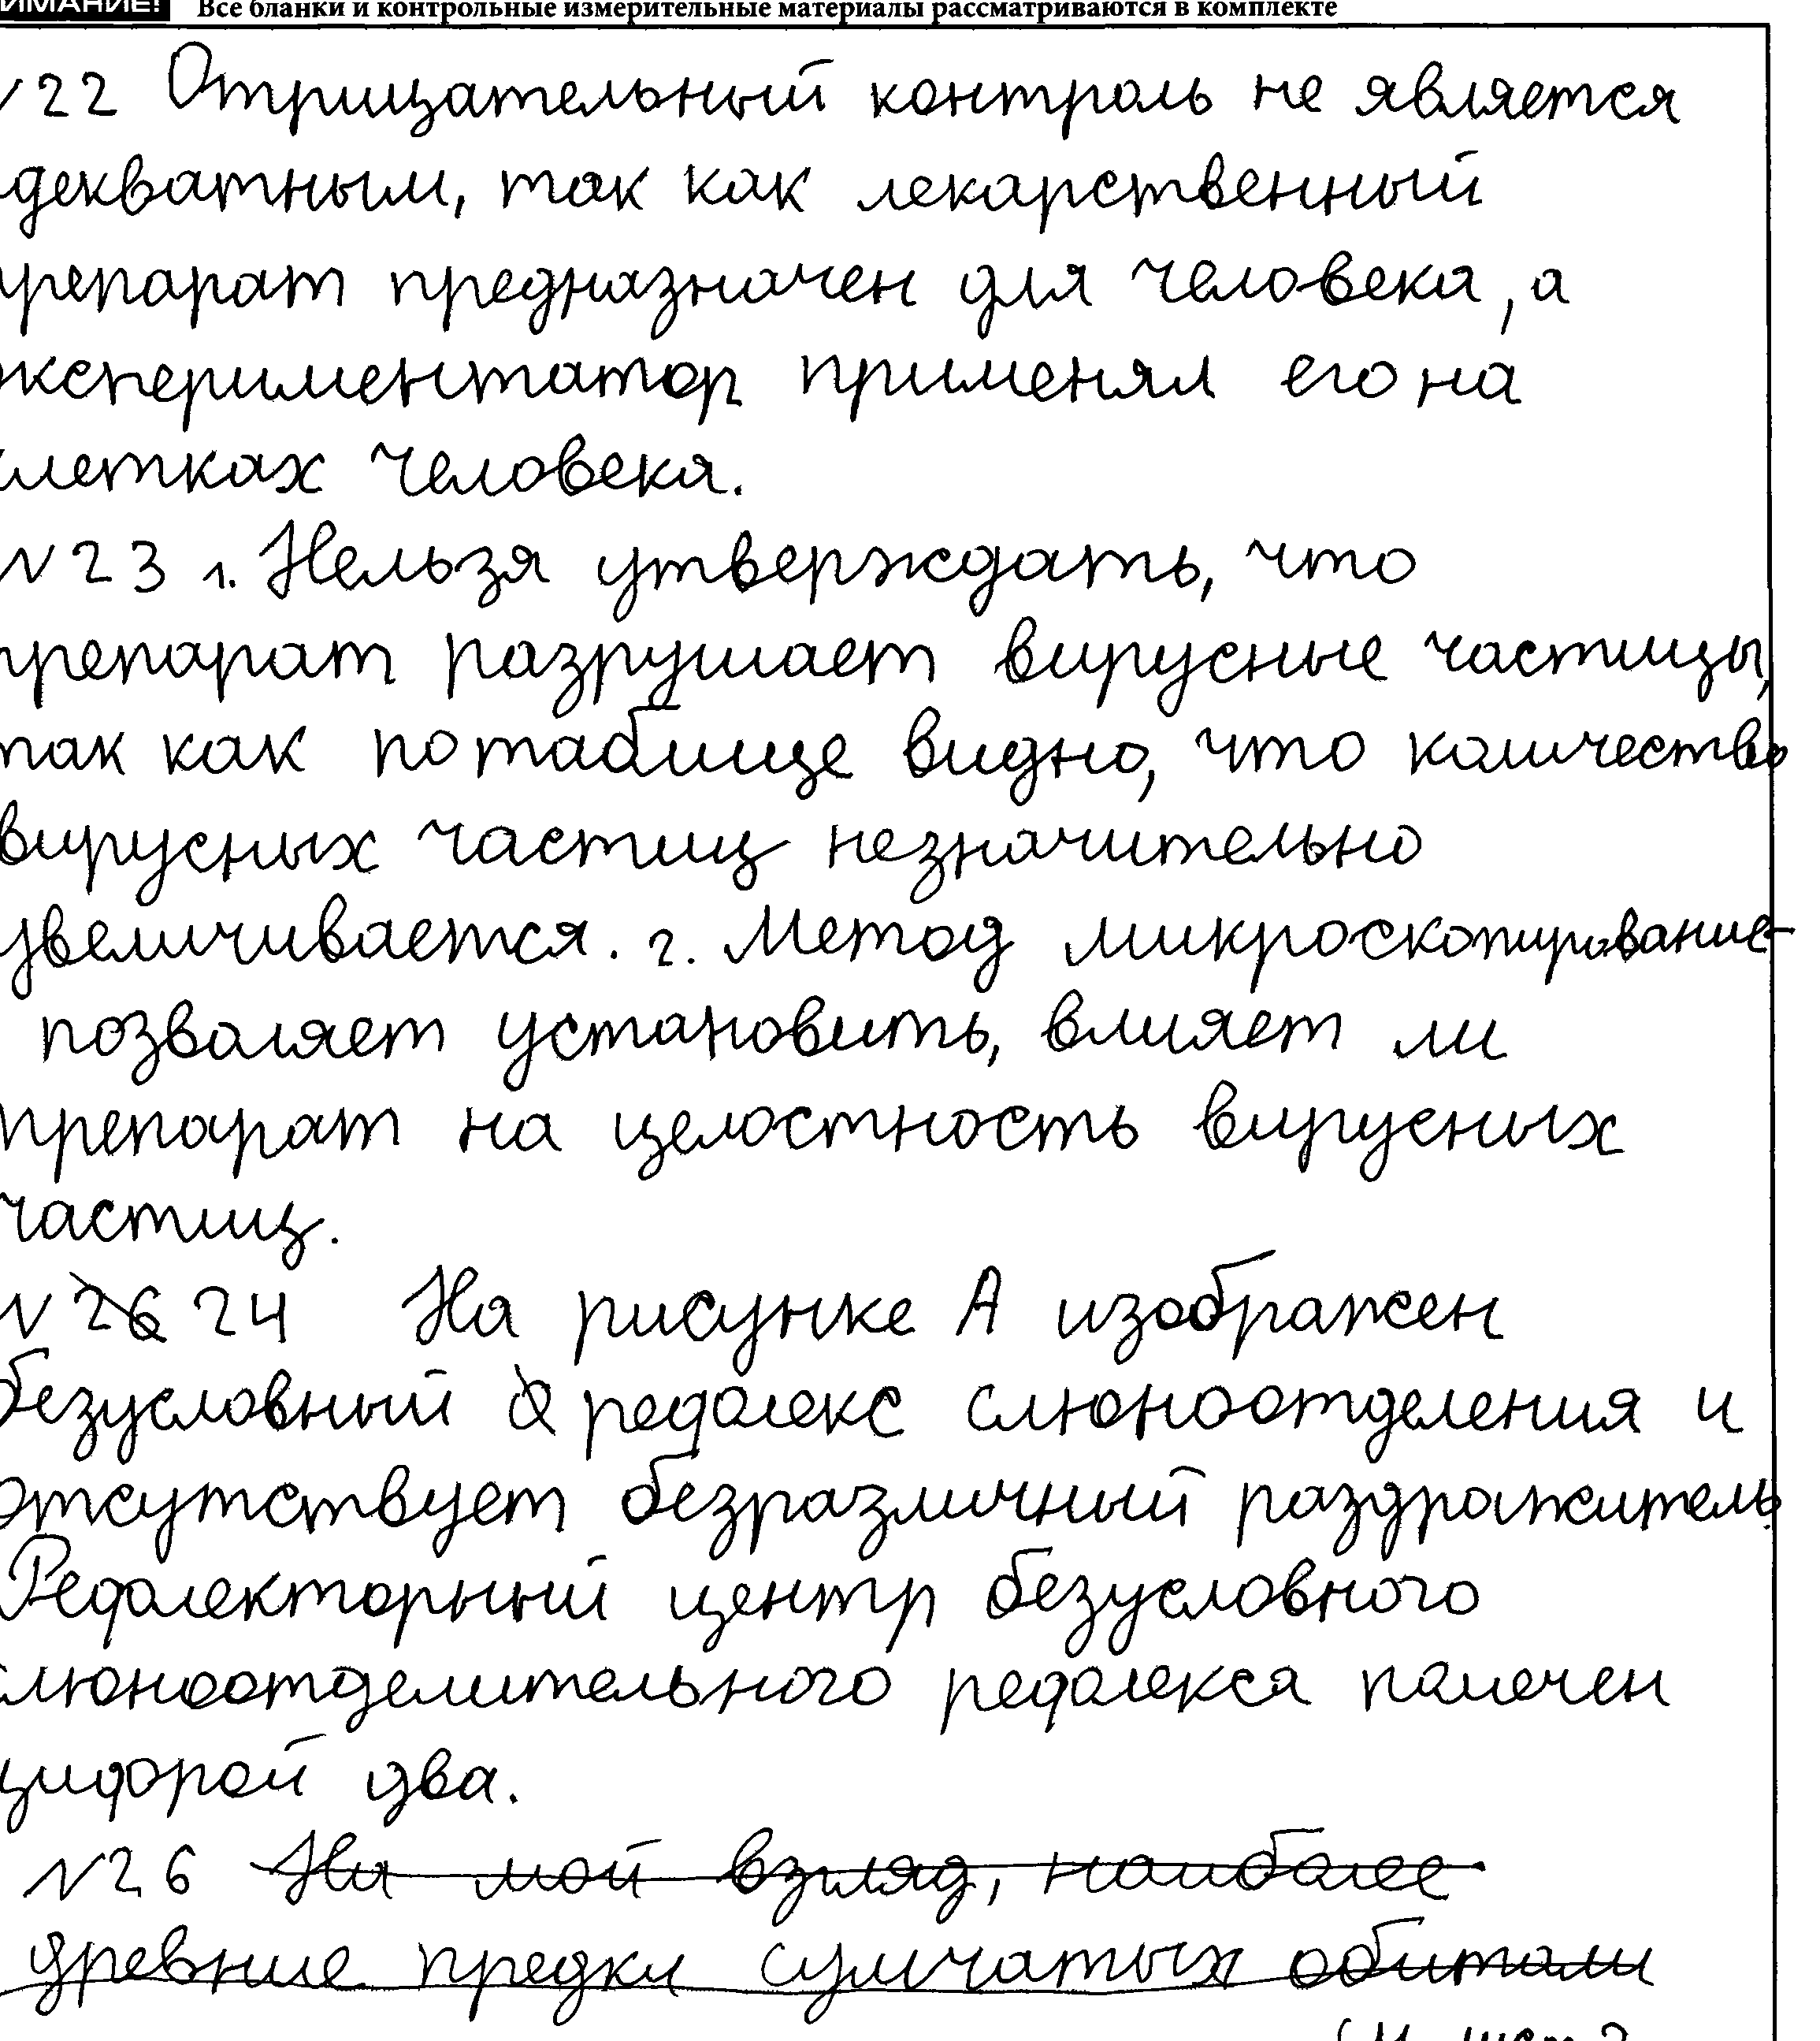 ИМАНИЕ! Все бланки и контрольные измерительные материалы рассматриваются в комплекте
№22 Отрицательный контроль не является
адекватным, так как лекарственный
препарат предназначен для человека, а
экспериментатор применял его на
клетках человека.
№23 1. Нельзя утверждать, что
препарат разрушает вирусные частицы,
так как по таблице видно, что количество
вирусных частиц незначительно
увеличивается. 2. Метод микроскопирование
позволяет установить, влияет ли
препарат на целостность вирусных
частиц.
№ 26 24 На рисунке А изображен
безусловный рефлекс слюноотделения и
отсутствует безразличный раздражитель.
Рефлекторный центр безусловного
слюноотделительного рефлекса помечен
цифрой два.
№26 На мой взгляд, наиболее
древние предки сумчатых обитали